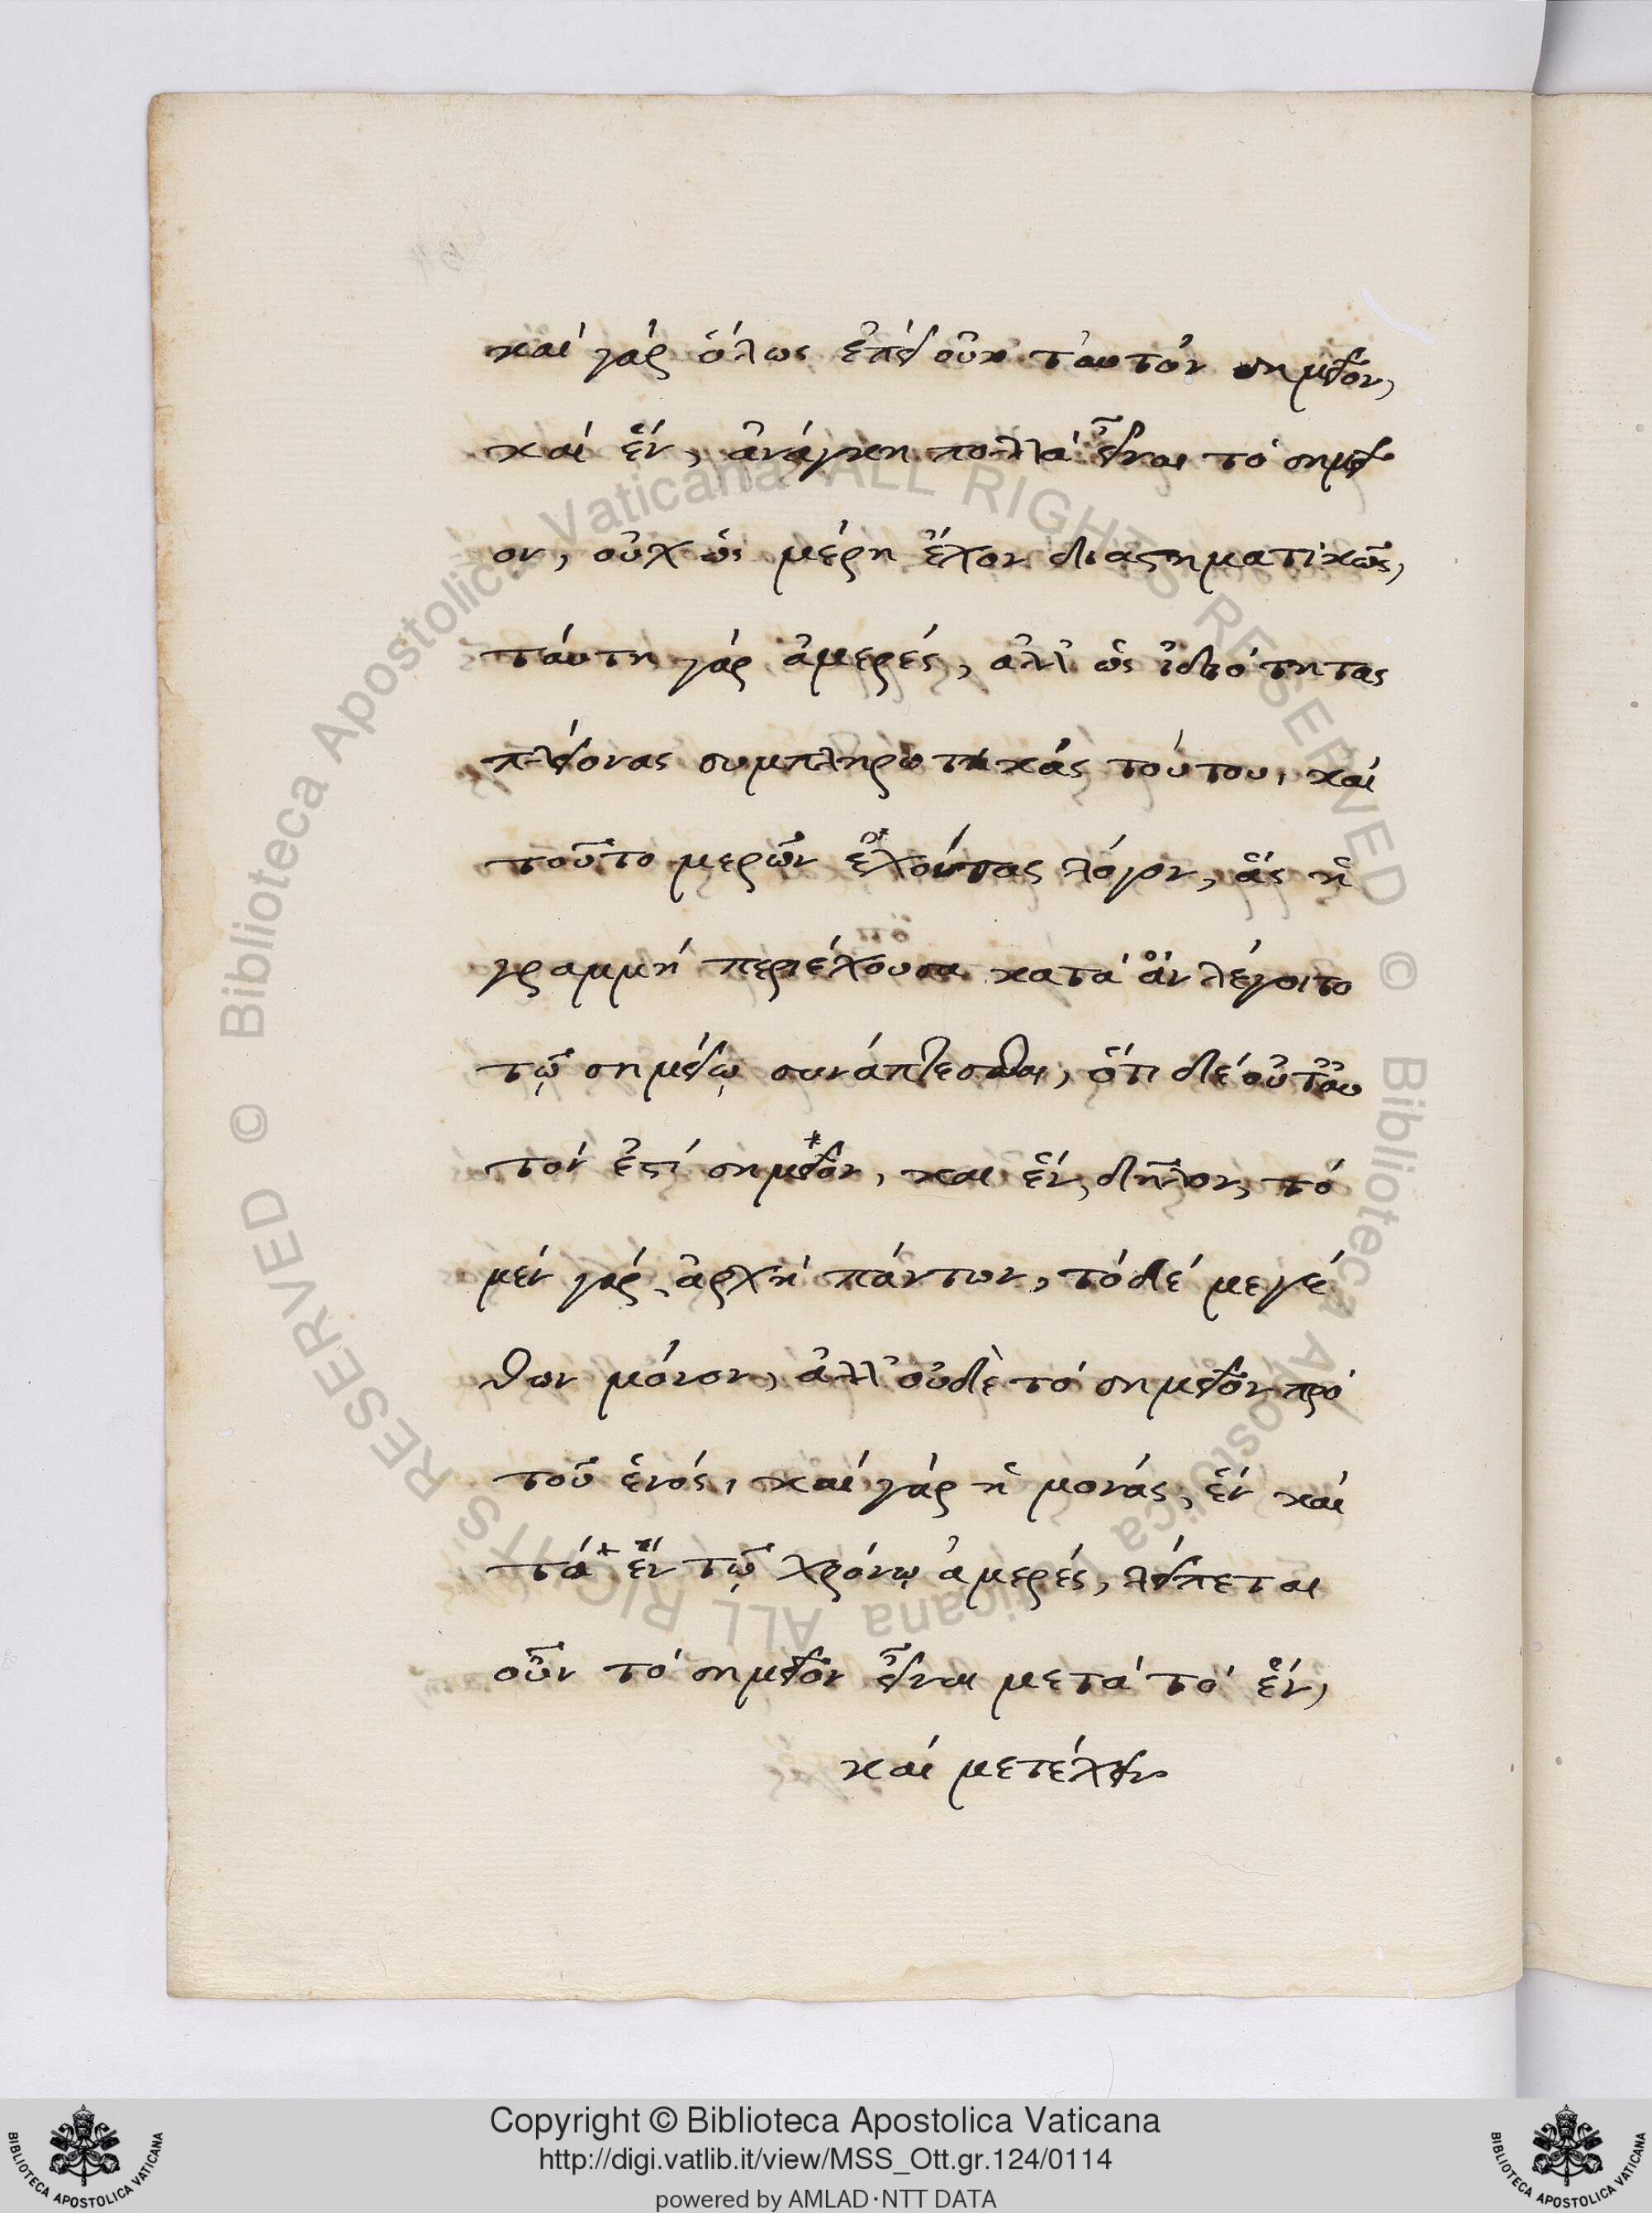 καὶ γάρ ὅλως ἐπεὶ οὐκ ταὐτὸν σημεῖον,
καὶ ἕν, ἀνάγκη πολλὰ εἶναι τὸ σημεῖ
ον, οὐχ ὡς μέρη ἔχον διαστηματικῶς,
ταύτη γάρ ἀμερές, ἀλλ' ὡς ἰδιότητας
πλείονας συμπληρωτικὰς τούτου, καὶ
τοῦτο μερῶν ἐχούσας λόγον, ἅς ἡ
γραμμὴ περιέχουσα κατὰ ἄν λέγοιτο
τῷ σημείῳ συνάπτεσθαι, ὅτι δὲ οὐ ταυ
τόν ἐστὶ σημεῖον, και ἕν, δῆλον, τὸ
μέν γάρ, ἀρχὴ πάντων, τὸ δέ μεγέ
θων μόνον, ἀλλ' οὐδὲ τὸ σημεῖον πρὸ
τοῦ ἑνός, καὶ γάρ ἡ μονάς, ἕν καὶ
τὰ ἐν τῷ χρόνῳ ἀμερές, λείπεται
οὖν τὸ σημεῖον εἶναι μετὰ τὸ ἕν,
καὶ μετέχειν
Biblioteca Apostolica Vaticana ALL RIGHTS RESERVED ©
Biblioteca Apostolica Vaticana ALL RIGHTS RESERVED ©
Copyright © Biblioteca Apostolica Vaticana
http://digi.vatlib.it/view/MSS_Ott.gr.124/0114
powered by AMLAD·NTT DATA
BIBLIOTECA APOSTOLICA VATICANA
BIBLIOTECA APOSTOLICA VATICANA